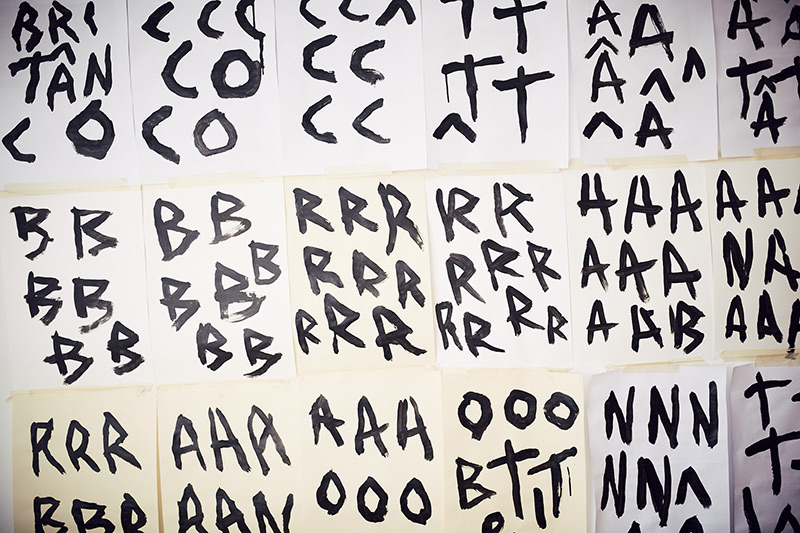 BRI
TÂN
CO
CCC
CO
CO
CC^
CC
CC
TT
TT
^T
ÂÂ
Â^^
^A
A
T^
A
BB
BB
BB
BB
BBB
BB
RRR
RRR
RRR
RR
RRR
RRRR
AAA
AAA
AAB
AA
NA
AAA
RRR
BBR
AAA
AAN
AAA
OOO
OOO
BTT
NNN
NN^
T
T